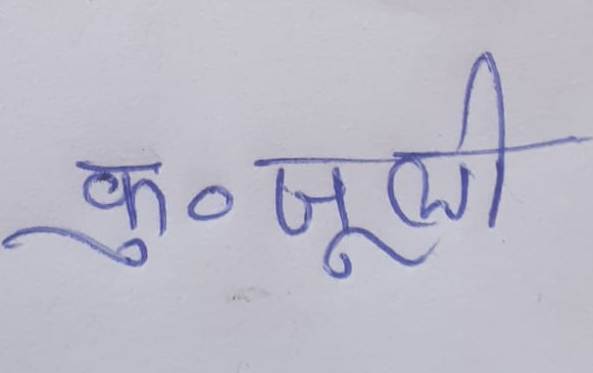 कु० जूली